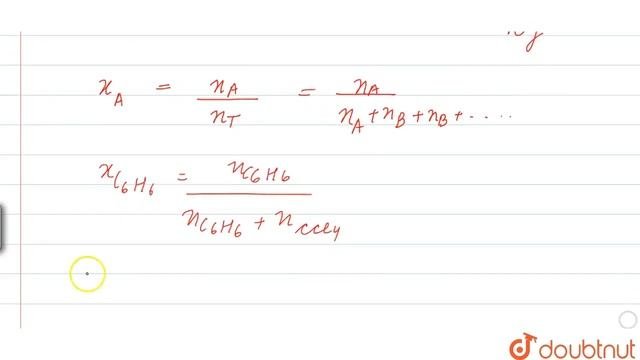 x_A = n_A / n_T = n_A / n_A + n_B + n_B + .....
x_C6H6 = n_C6H6 / n_C6H6 + n_CCl4
doubtnut